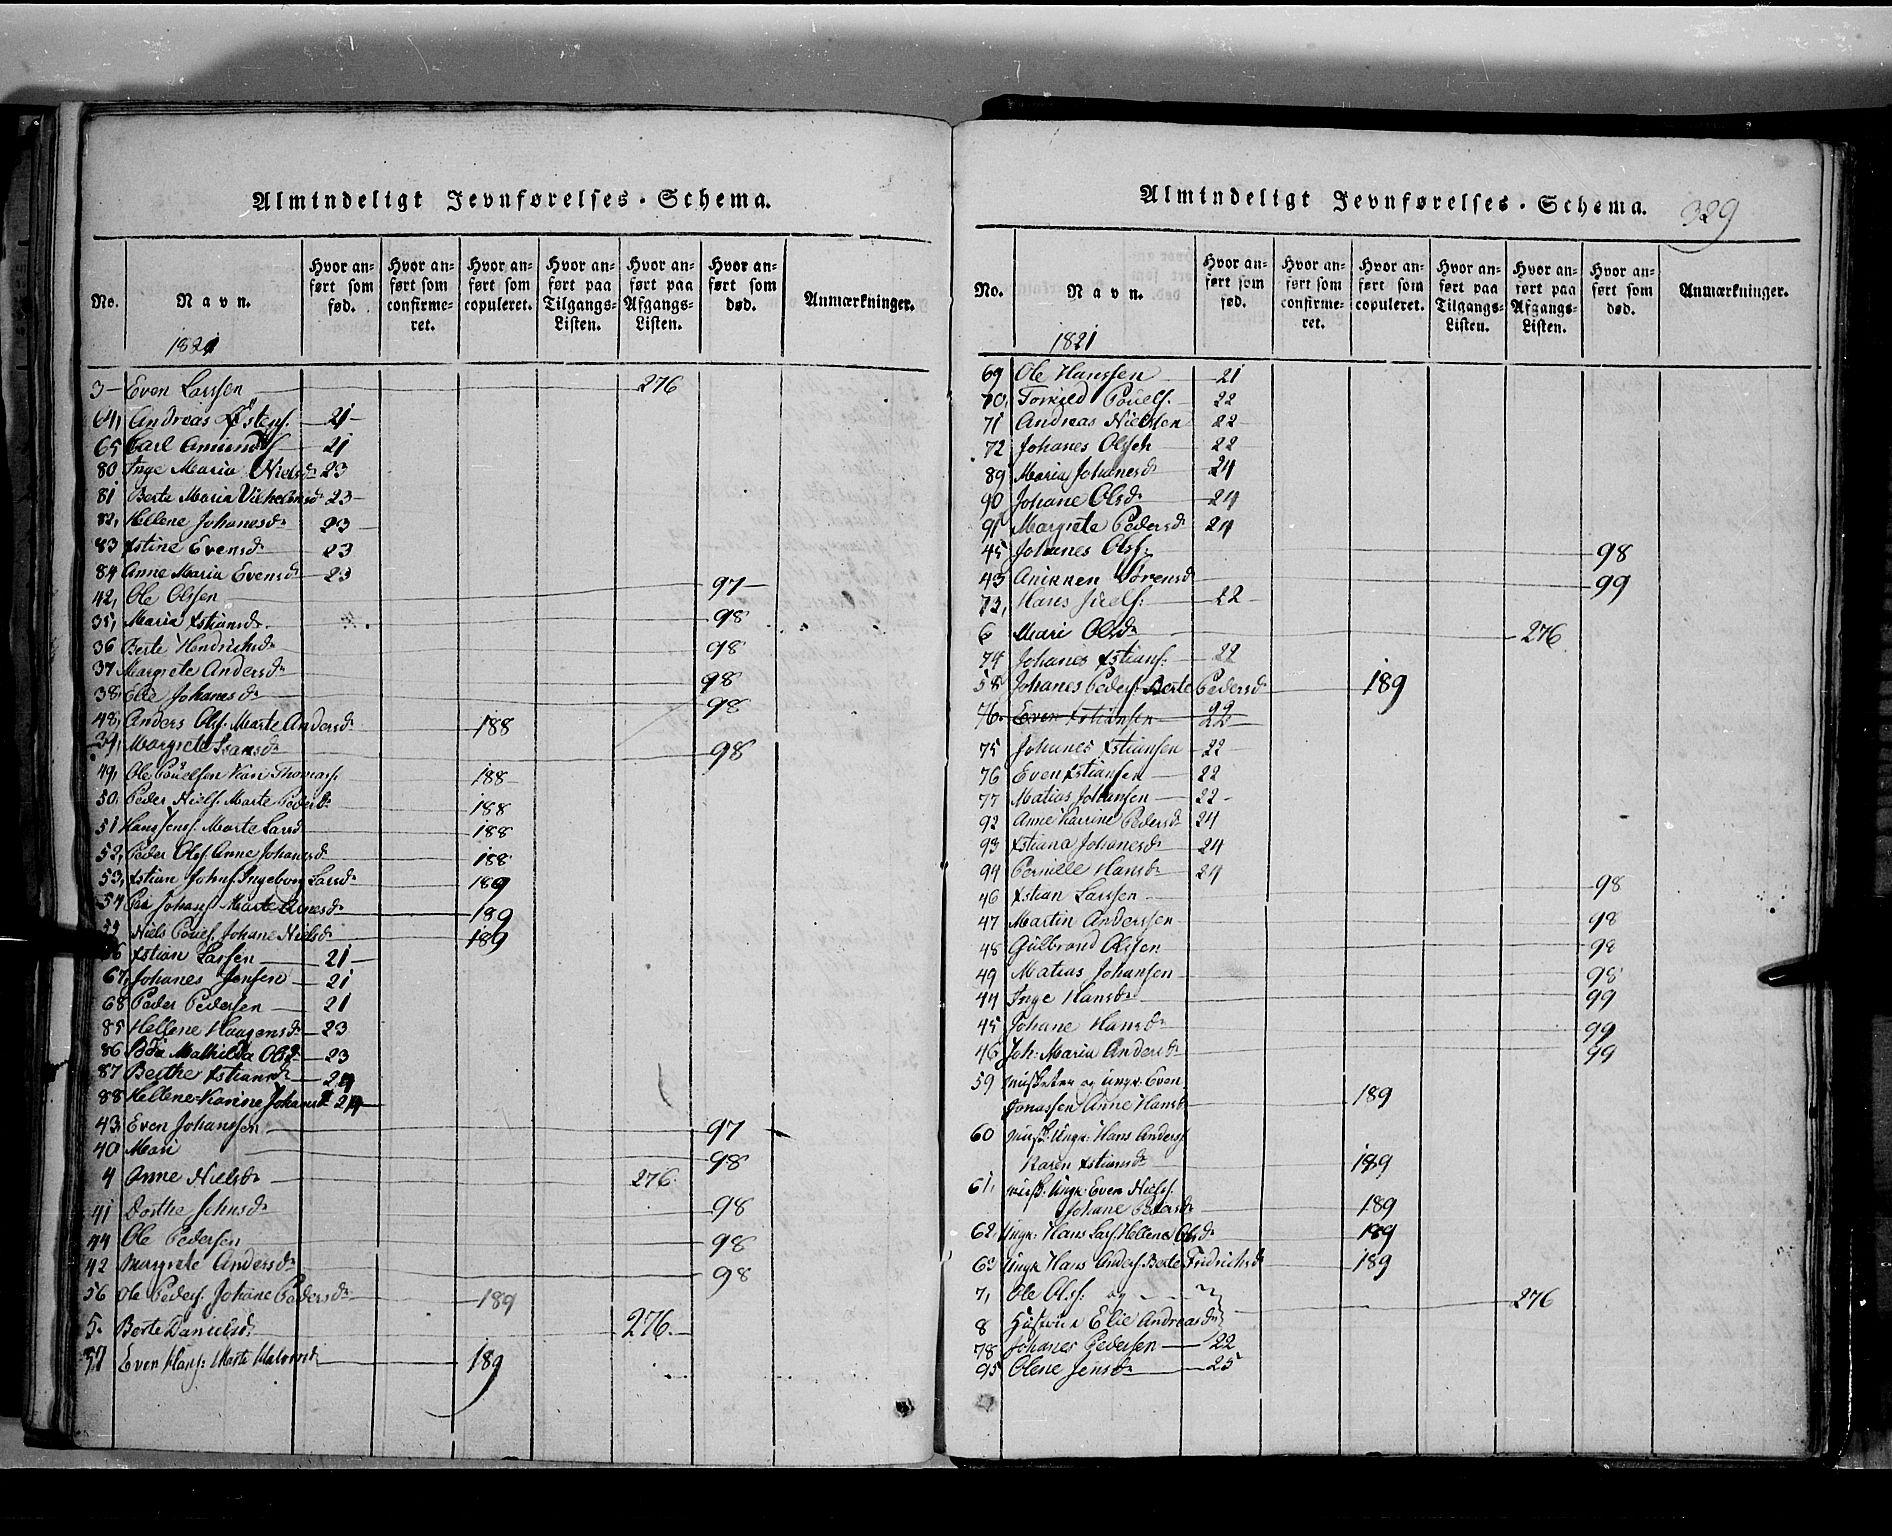 Almindeligt Jevnførelses-Schema.
No. Navn. Hvor anført som fød. Hvor anført som confirmeret. Hvor anført som copuleret. Hvor anført paa Tilgangs-Listen. Hvor anført paa Afgangs-Listen. Hvor anført som død. Anmærkninger.
1821
3 Even Larssen 276
64, Andreas Østens. 21
65 Carl Amunds 21
80 Inge Maria Nielsdr 23
81 Berte Maria Vilhelmsd 23
82, Hellene Johanesdr 23
83 Xstine Evensdr 23
84 Anne Maria Evensdr 23
42, Ole Olssen 97
35, Maria Xstiansdr. 98
36 Berte Hendrichsdr 98
37 Margrete Andersdr 98
38, Elie Johanesdr 98
48, Anders Ols. Marte Andersdr 188
39, Margrete Isamsdr 98
49, Ole Pouelsen Kari Thomas. 188
50, Peder Niels. Marte Pedersdr 188
51 Hans Jens. Marte Larsd 188
52, Peder Ols. Anne Johanesd 188
53, Xstian Johns. Ingeborg Larsdr 189
54 Per Johans. Marte Arnesdr 189
55 Niels Pouels. Johane Nielsdr 189
66 Xstian Larssen 21
67, Johanes Jensen 21
68 Peder Pedersen 21
85 Hellene Haagensdr 23
86 Mathilda Olsdr 23
87 Berthe Xstiansdr 24
88 Hellene Karine Johansd 24
43, Even Johanssen 97
40 Mari 98
4 Anne Nielsdr 276
41 Dorthe Johnsdr 98
44 Ole Pedersen 98
42 Margrete Andersdr 98
56 Ole Peders. Johane Pedersdr 189
5. Berte Danielsdr. 276.
57 Even Hans: Marte Halvorsdr 189
Almindeligt Jevnførelses-Schema. 329
No. Navn. Hvor anført som fød. Hvor anført som confirmeret. Hvor anført som copuleret. Hvor anført paa Tilgangs-Listen. Hvor anført paa Afgangs-Listen. Hvor anført som død. Anmærkninger.
1821
69 Ole Hanssen 21
70, Torkild Pouels. 22
71 Andreas Nielssen 22
72 Johanes Olssen 22
89 Maria Johanesdr 24
90 Johane Olsdr 24
91 Margrete Pedersdr 24
45 Johanes Ols: 98
43 Anikken Sørensd 99
73, Hans Juels: 22
6 Mari Olsdr 276.
74 Johanes Xstians: 22
58 Johanes Peders. Berte Pedersdr 189
76. Even Xstiansen 22
75 Johanes Xstiansen 22
76 Even Xstiansen 22
77 Matias Johansen 22
92 Anne Karrine Pedersdr 24
93 Xstiana Johanesdr 24
94 Pernille Hansdr 24
46 Xstian Larssen 98
47 Martin Anderssen 98
48 Gulbrand Olssen 98
49 Matias Johansen 98
44 Inge Hansdr 99
45 Johane Hansdr 99
46 Joh: Maria Andersdr 99
59 Musketer og Ungk: Even
Jonassen Anne Hansdr 189
60 Musk: Ungk: Hans Anders.
Karen Xstiansdr 189
61, Musk: Ungk: Even Niels.
Johane Pedersdr 189
62, Ungk: Hans Lars. Hellene Olsdr 189
63 Ungk Hans Anders. Berte Fridrichsdr 189
7, Ole Ols: og
276
8 Hustrue Elie Andreasdr
78 Johanes Pedersen 22
95 Olene Jensdr 25